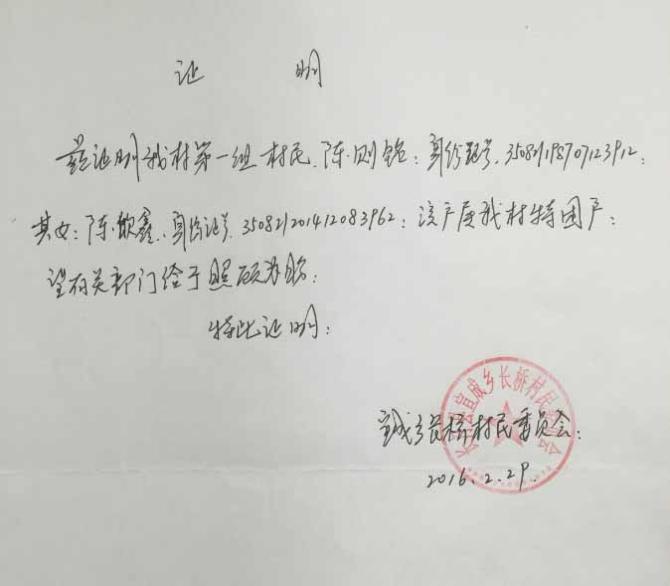 证 明
兹证明我村第一组村民.陈则铭:身份证号.350821198707123912:
其女:陈歆鑫.身份证号.350821201412083962:该户属我村特困户:
望有关部门给于照顾为盼:
特此证明:
宣成乡长桥村民委员会:
2016.2.29.
宣成乡长桥村民委员会